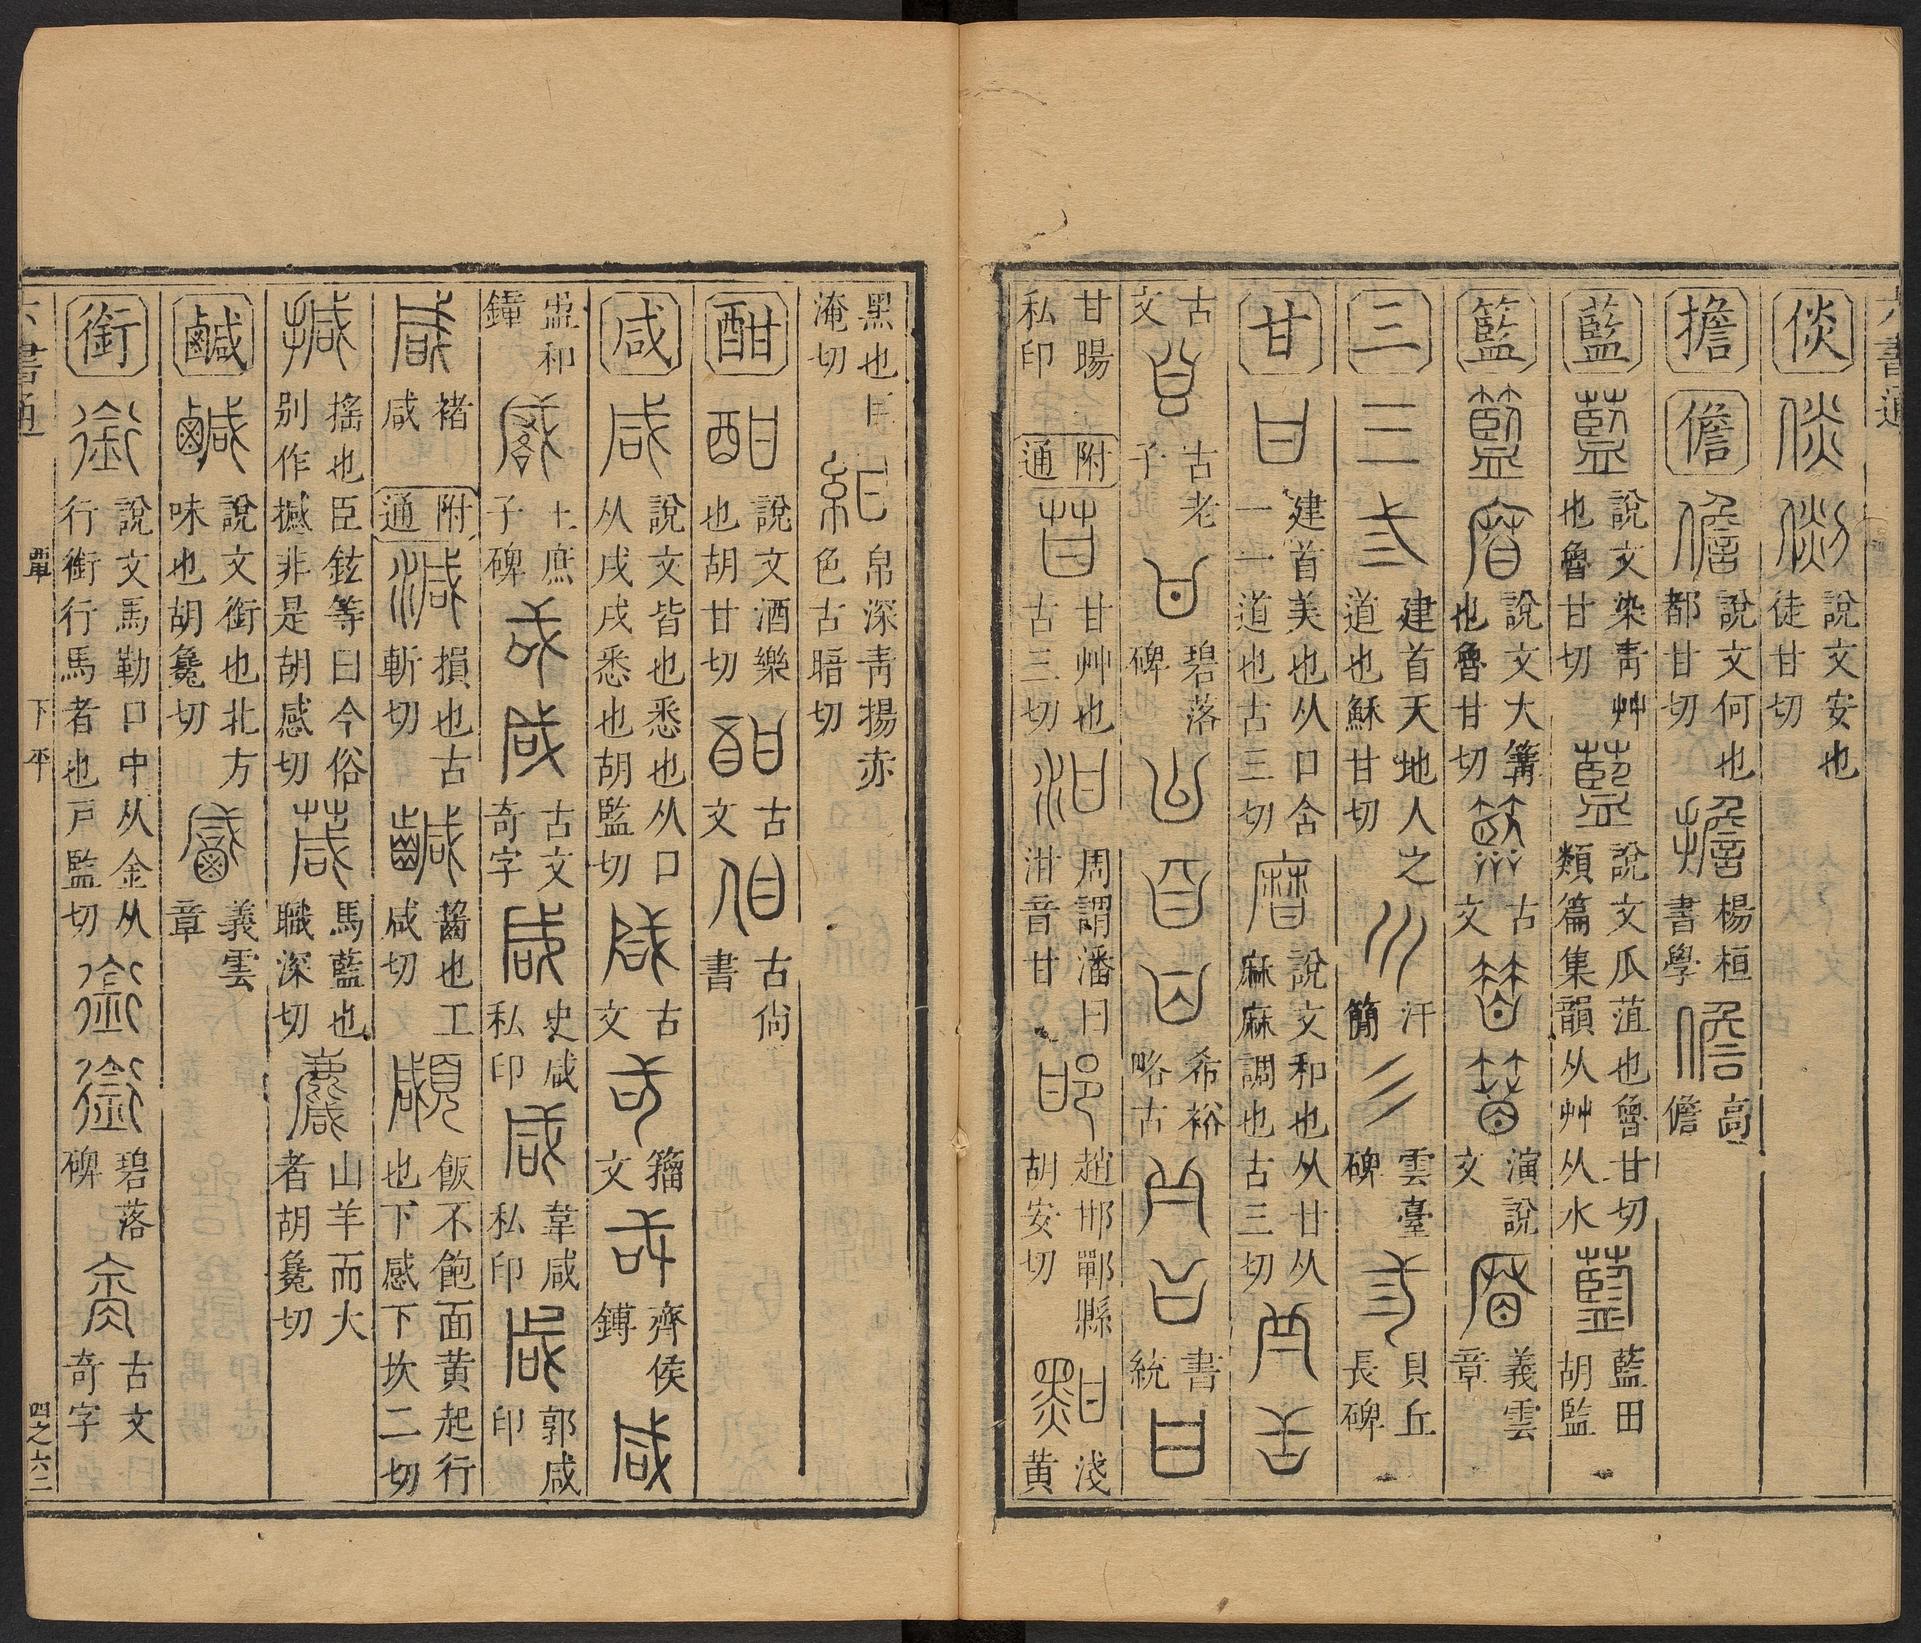 六書通
倓 說文安也徒甘切
擔 儋 說文何也都甘切 楊桓書學 高儋
藍 說文染靑艸也魯甘切 說文瓜菹也魯甘切類篇集韻从艸从水 藍田胡監
籃 說文大篝也魯甘切 古文 演說文 義雲章
三 建首天地人之道也穌甘切 汗簡 雲臺碑 貝丘長碑
甘 建首美也从口含一一道也古三切 說文和也从甘从麻麻調也古三切
古文 古老子 碧落碑 希裕略古 書統
甘暘私印 附通 甘艸也古三切 周謂潘曰泔音甘 趙邯鄲縣胡安切 淺黃
黑也 淹切 帛深靑揚赤色古暗切
酣 說文酒樂也胡甘切 古文 古尙書
咸 說文皆也悉也从口从戌戌悉也胡監切 古文 籀文 齊侯鎛
盄和鐘 土庶子碑 古文奇字 史咸私印 韋咸私印 郭咸印
褚咸 附通 損也古斬切 齧也工咸切 飯不飽面黃起行也下感下坎二切
搖也臣鉉等曰今俗別作撼非是胡感切 馬藍也職深切 山羊而大者胡毚切
鹹 說文銜也北方味也胡毚切 義雲章
銜 說文馬勒口中从金从行銜行馬者也戸監切 碧落碑 古文奇字
六書通 覃 下平 四之六二